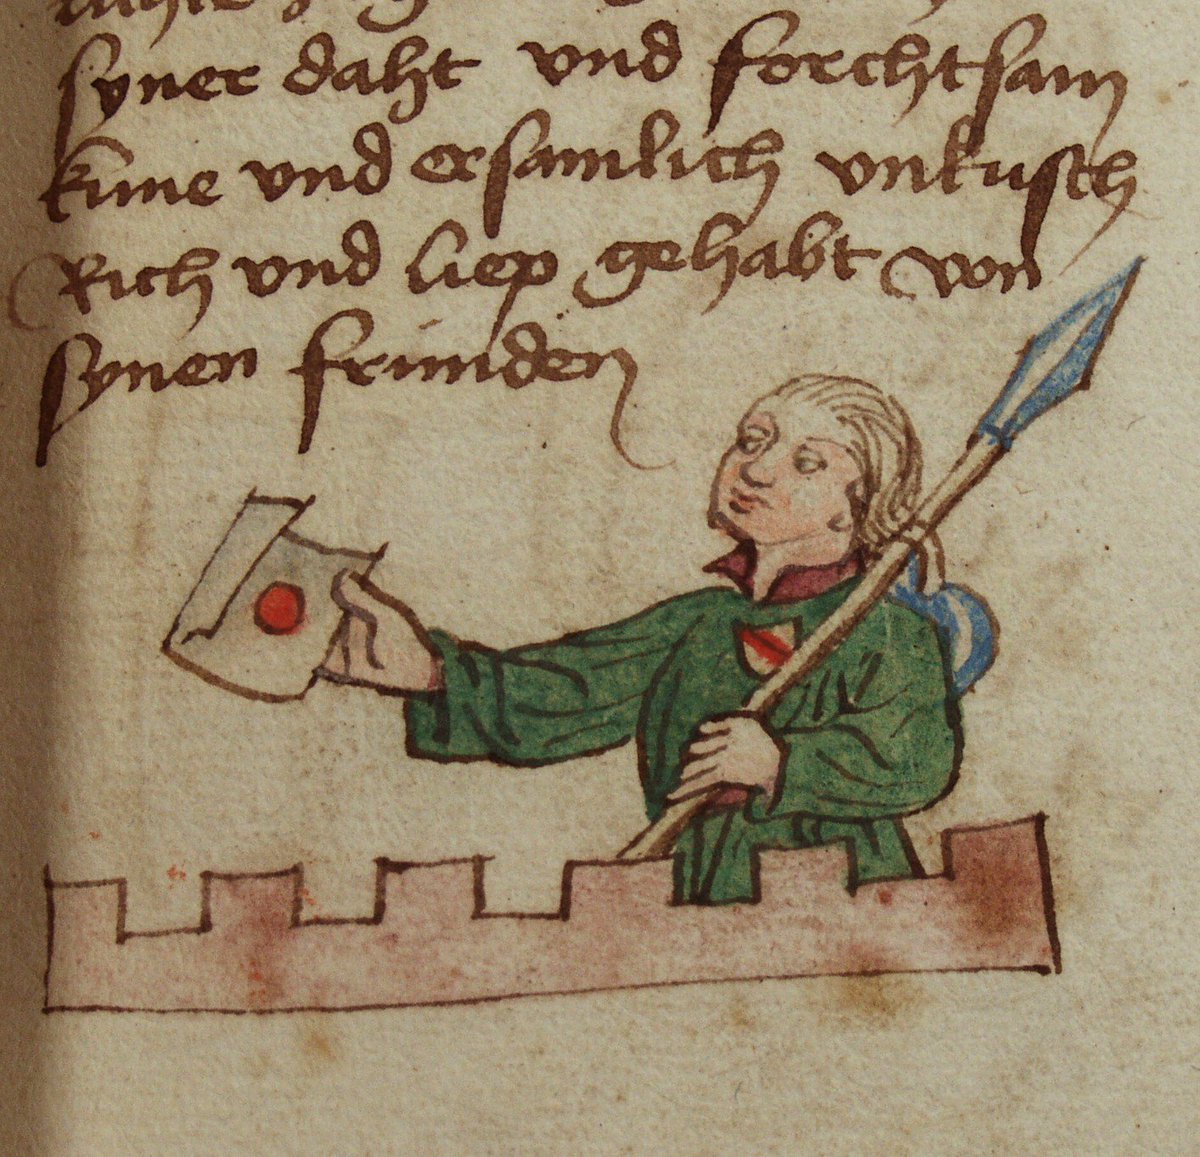 syner daht vnd forchtsam
kune vnd ersamlich vnkusch
Rich vnd liep gehabt von
synen frunden